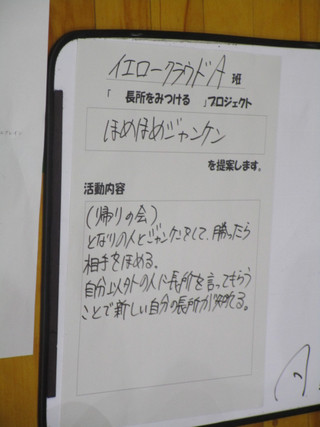 イエロークラウドA 班
「 長所をみつける 」プロジェクト
ほめほめジャンケン
を提案します。
活動内容
(帰りの会)
となりの人とジャンケンをして、勝ったら
相手をほめる。
自分以外の人に長所を言ってもらう
ことで新しい自分の長所が知れる。